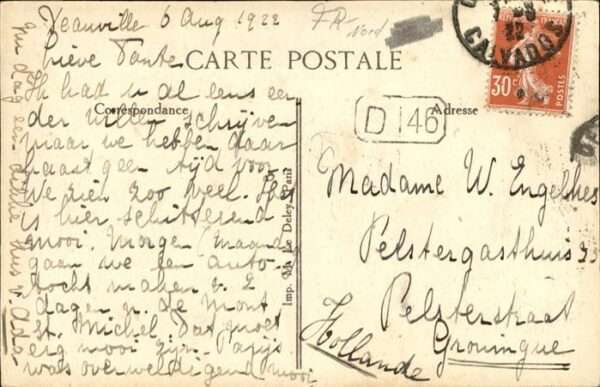 Deauville 6 Aug 1922
FR-
Nord
CARTE POSTALE
Correspondance
Adresse
CALVADOS
30c
POSTES
D 146
Lieve Tante
Ik had u al eens eer
der willen schrijven
maar we hebben daar
haast geen tijd voor
We zien zoo veel. Het
is hier schitterend
mooi. Morgen (maandag
gaan we een auto-
tocht maken v. 2
dagen n. de Mont
St. Michel. Dat moet
erg mooi zijn. Parijs
was overweldigend mooi
dag een dikke kus v. Ada
Imp. Le Deley, Paris
Madame W. Engelkes
Pelstergasthuis
Pelsterstraat
Groningue
Hollande